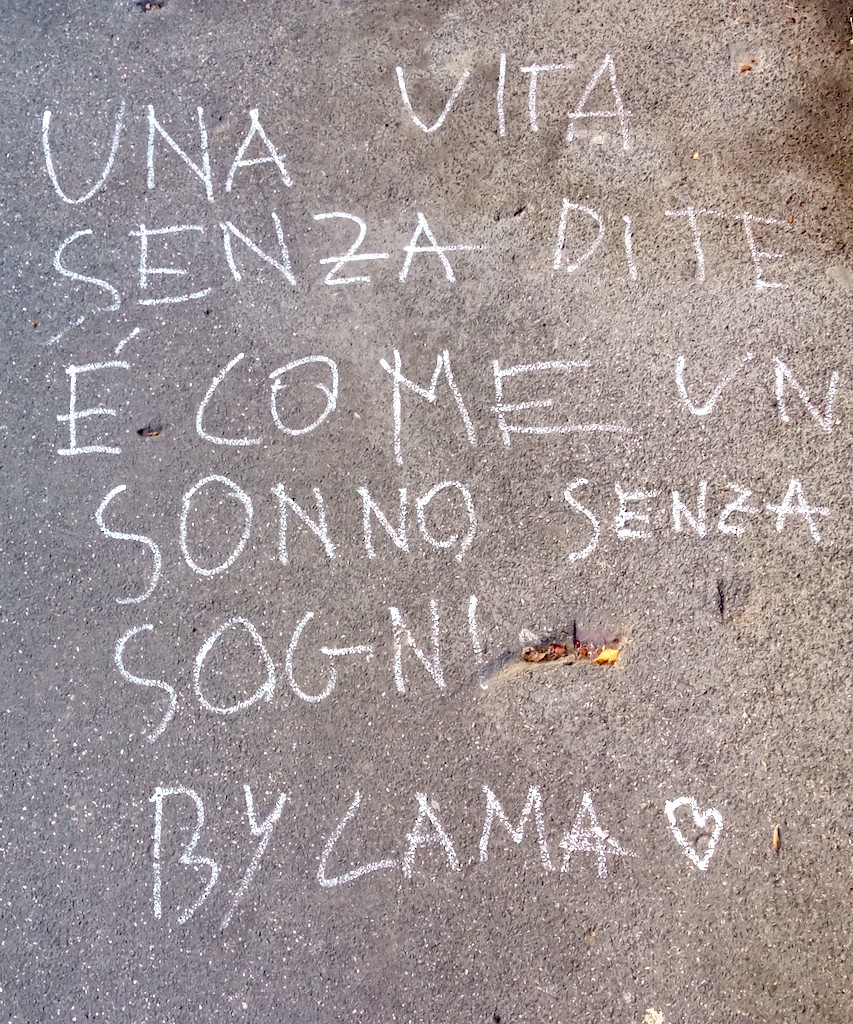 UNA VITA
SENZA DI TE
É COME UN
SONNO SENZA
SOGNI
BY LAMA ♡